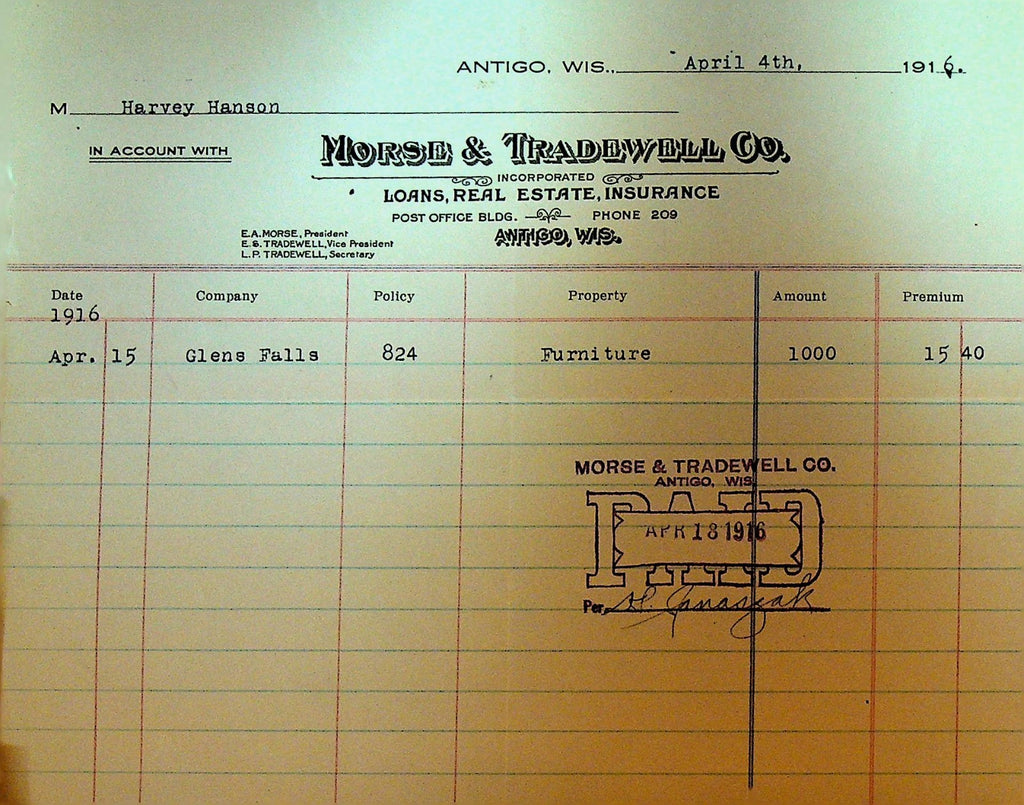 ANTIGO, WIS., April 4th, 1916.
M Harvey Hanson
IN ACCOUNT WITH
MORSE & TRADEWELL CO.
INCORPORATED
LOANS, REAL ESTATE, INSURANCE
POST OFFICE BLDG. PHONE 209
ANTIGO, WIS.
E.A. MORSE, President
E.S. TRADEWELL, Vice President
L.P. TRADEWELL, Secretary
Date Company Policy Property Amount Premium
1916
Apr. 15 Glens Falls 824 Furniture 1000 15 40
MORSE & TRADEWELL CO.
ANTIGO, WIS.
PAID
APR 18 1916
Per H. Janaszak